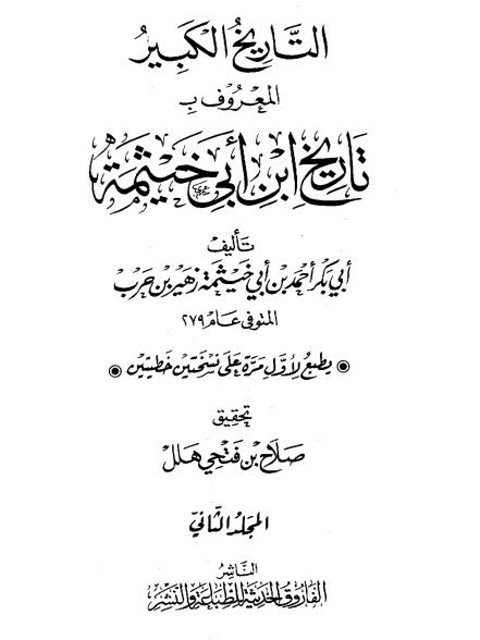 التَّاريخُ الكَبيرُ
المَعْرُوف بـ
تَاريخِ ابْنِ أَبي خَيْثَمَة
تَأليف
أبي بَكر أحمَد بن أبي خَيْثمَة زهَير بن حَرب
المتوفى عَام ٢٧٩
يطبع لأوّلِ مَرّة عَلى نسْختَين خطيتين
تحقِيق
صَلَاح بن فَتحي هَلل
المجَلدُ الثَّانيّ
النَّاشِرُ
الفَاروق الحَديثة للطبَاعَة والنَّشر